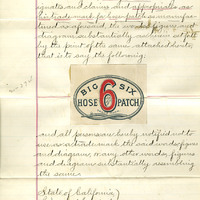 and claims and appropriates as
trade mark for
as aforesaid, the
diagram, substantially as herein set forth
by the print of the same attached hereto,
that is to say the following;
BIG SIX
6
HOSE PATCH
and all persons are hereby notified not to
use as a trade mark the said words figures
and diagrams, or any other words, figures
and diagrams substantially resembling
the same.
State of California